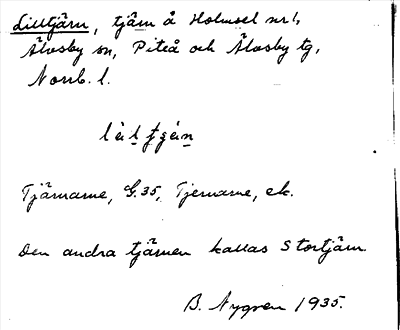 Lilltjärn, tjärn å Holmsel nr 1,
Älvsby sn, Piteå och Älvsby tg,
Norrb. l.
Tjärnarne, G. 35, Tjernarne, ek.
Den andra tjärnen kallas Stortjärn
B. Nygren 1935.